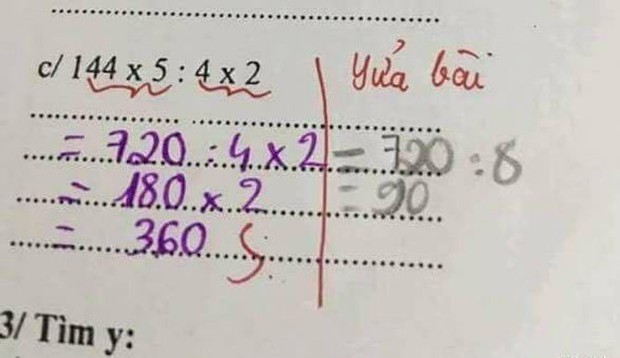 c/ 144 x 5 : 4 x 2
Yửa bài
= 720 : 4 x 2
= 180 x 2
= 360 S
= 720 : 8
= 90
3/ Tìm y: